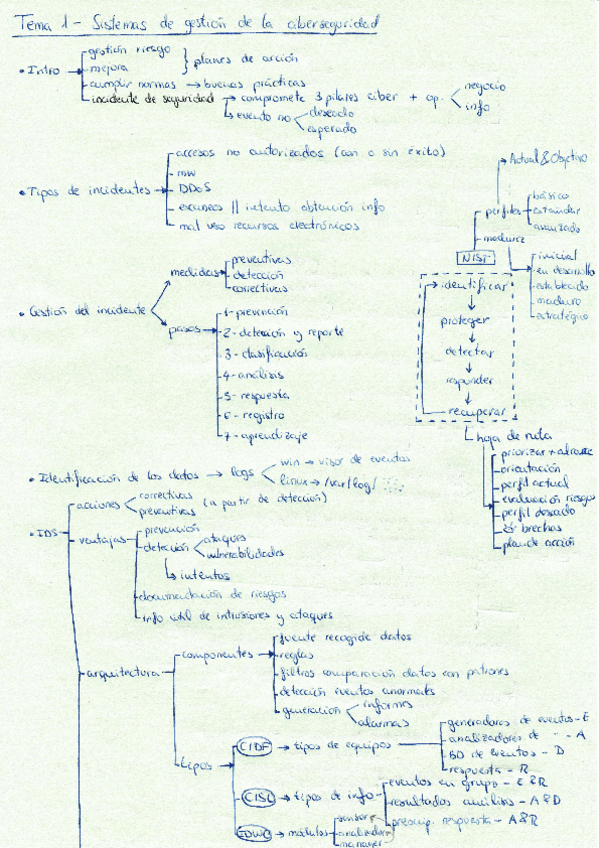 Tema 1 - Sistemas de gestión de la ciberseguridad
• Intro → gestión riesgo
mejora
} planes de acción
cumplir normas → buenas prácticas
incidente de seguridad → compromete 3 pilares ciber + op. < negocio
info
↳ evento no < deseado
esperado
• Tipos de incidentes → accesos no autorizados (con o sin éxito)
mw
DDoS
escaneos || intento obtención info
mal uso recursos electrónicos
• Gestión del incidente
medidas → preventivas
detección
correctivas
pasos → 1- prevención
2- detección y reporte
3- clasificación
4- análisis
5- respuesta
6- registro
7- aprendizaje
NIST
perfiles
→ Actual & Objetivo
básico
estándar
avanzado
madurez
inicial
en desarrollo
establecido
maduro
estratégico
identificar
↓
proteger
↓
detectar
↓
responder
↓
recuperar
↳ hoja de ruta
priorizar + alcance
orientación
perfil actual
evaluación riesgos
perfil deseado
brechas
plan de acción
• Identificación de los datos → logs < win → visor de eventos
linux → /var/log/
• IDS
acciones < correctivas
preventivas (a partir de detección)
ventajas
prevención
detección < ataques
vulnerabilidades
↳ intentos
documentación de riesgos
info útil de intrusiones y ataques
arquitectura
componentes → fuente recogida datos
reglas
filtros comparación datos con patrones
detección eventos anormales
generación < informes
alarmas
tipos
CIDF → tipos de equipos
generadores de eventos - E
analizadores de " - A
BD de eventos - D
respuesta - R
CISL → tipos de info
eventos en grupo - E & R
resultados análisis - A & D
prescrip. respuesta - A & R
IDWG → módulos
sensor
analizador
manager